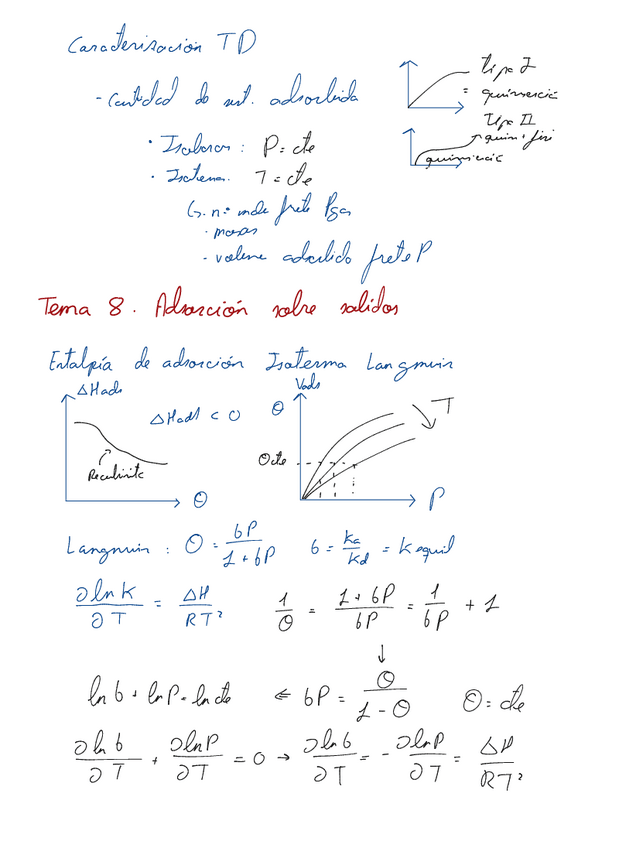 Caracterización TD
- Cantidad de sust. adsorbida
tipo I
= quimisorció
Tipo II
quim + fisi
quimisorció
· Isobaras: P = cte
· Isoterma. T = cte
Gr. nº mole frete Pgas
· masas
- volume adsorbido frete P
Tema 8. Adsorción sobre solidos
Entalpía de adsorción Isoterma Langmuir
ΔHads
ΔHads < 0
Recubrimito
Θ
Vads
Θ
T
Θcte
P
Langmuir: Θ = bP / 1 + bP b = ka / kd = K equil
∂lnK / ∂T = ΔH / RT² 1 / Θ = 1 + bP / bP = 1 / bP + 1
↓
ln b + ln P = ln cte ⇐ bP = Θ / 1 - Θ Θ = cte
∂ln b / ∂T + ∂lnP / ∂T = 0 → ∂ln b / ∂T = - ∂lnP / ∂T = ΔH / RT²